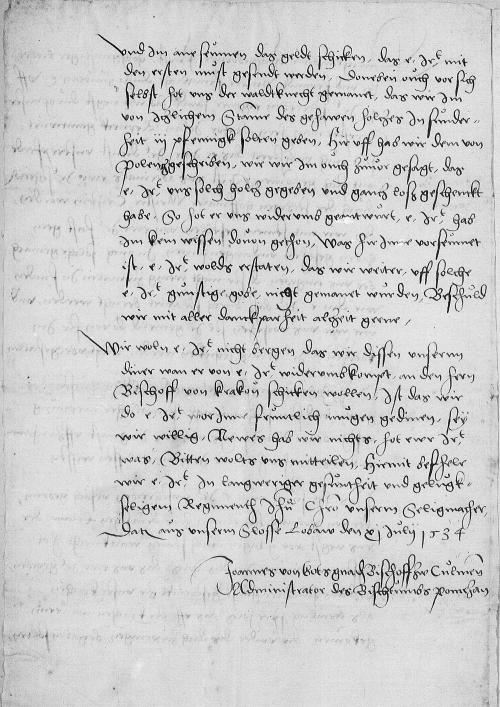 Und Im ane seumen, das geldt schiken, das e, Jrt mit
den ersten must gesendt werden, Doneben ouch vor sich
selbst hot uns der waldtknecht gemanet, das wir Im
von Itzlichem Stamme des gehawen holtzes In sunder-
heit iij pfennigk solten geben, Hir uff hab wir dem von
Polentz geschriben, wie wir Im ouch zuuor gesagt, das
e, Jrt uns solch holtz gegeben und gantz loß geschenkt
habe, So hot er uns widerumb geantwurt, e, Jrt hab
Im kein wissen douon gethon, Was hir Inne vorseumet
ist, e, Jrt wolds erstaten, das wir weiter, uff solche
e, Jrt gunstige gobe, nicht gemanet wurden, Beschuld
wir mit aller danckparheit alzeit gerne,
Wir woln e, Jrt nicht bergen das wir dissen unsernn
diner wan er von e, Jrt widerumb kompt, an den hern
Bischoff von krakou schicken wollen, Ist das wir
do e, Jrt wor Inne fruntlich mugen gedinen, sey
wir willig, Newes hab wir nichts, hot ewer Jrt
was, Bitten wolts uns mitteilen, Hiemit befhele
wir e, Jrt In langweriger gesuntheit und geluck-
seligem Regimenth Ihu Chro unserm Seligmacher,
Datum aus unserm Slosse Lobaw den xj Julij 1534
Joannes von Gots gnads Bischoff zw Culmen
Administrator des Bischtumbs Pomezan